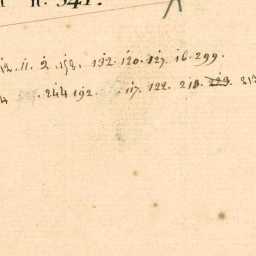 n. 341.
12. 11. 2. 152. 132. 120. 127. 16. 299.
4 244 192. 117. 122. 218. 223. 213